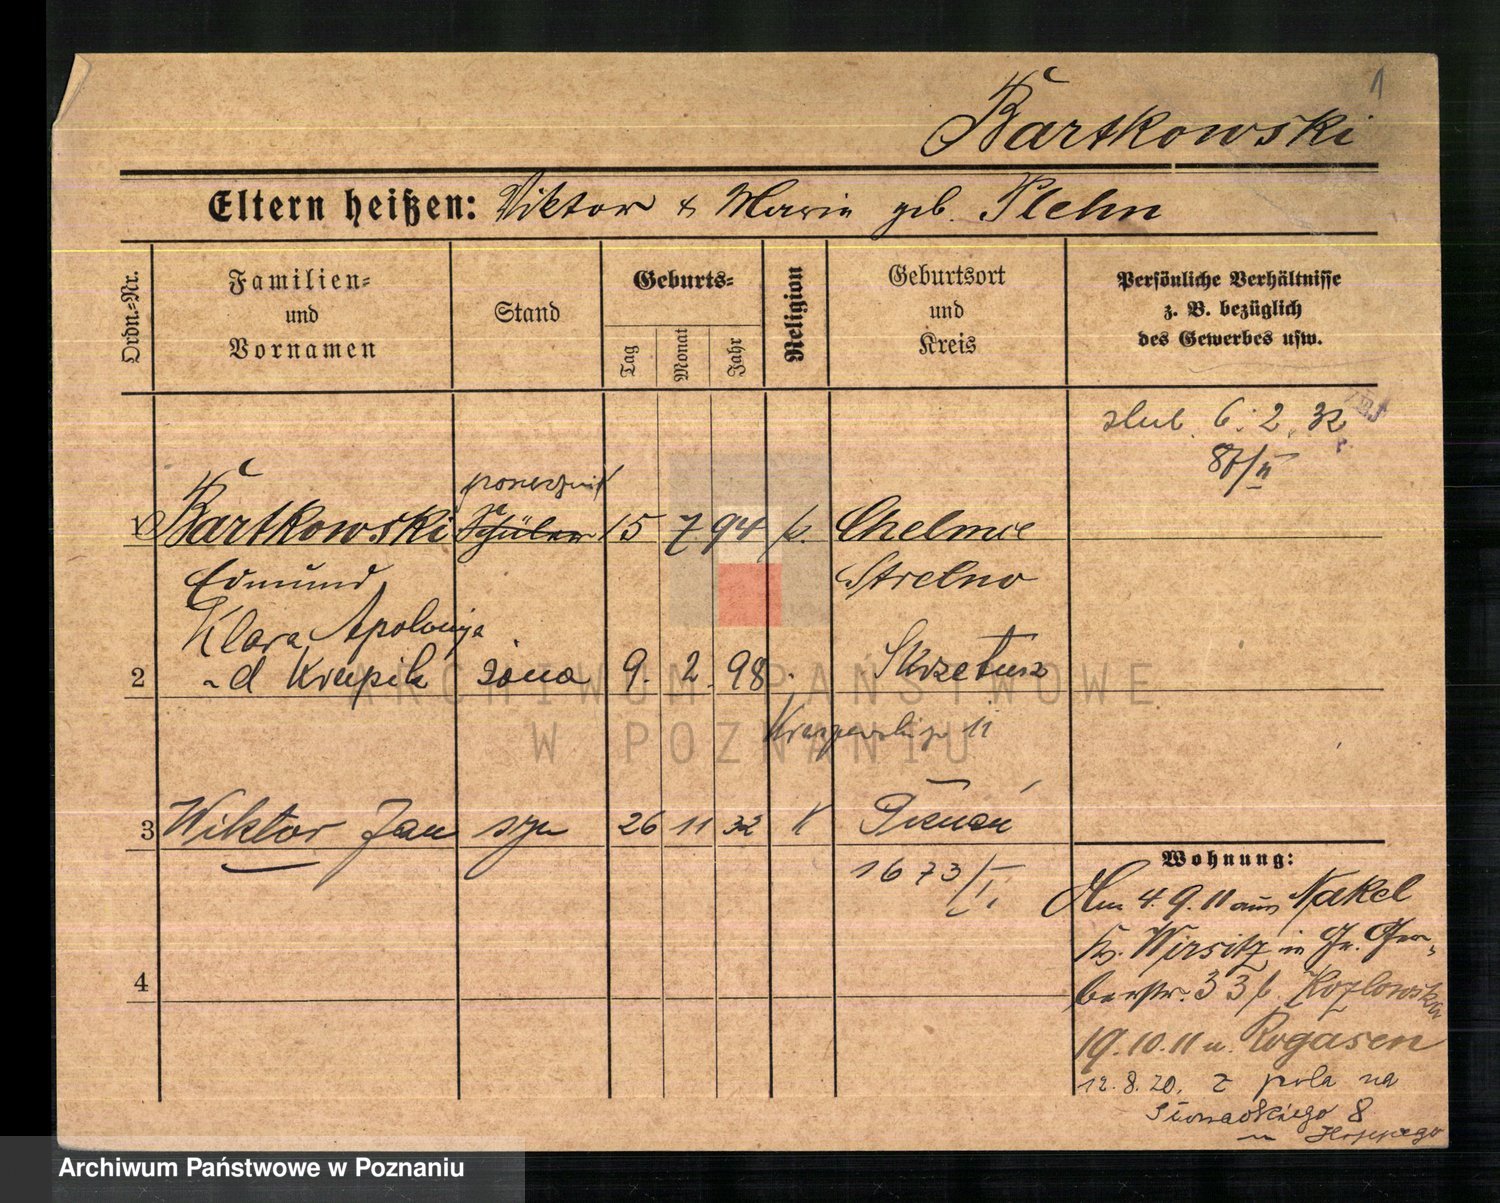 1
Bartkowski
Eltern heißen: Viktor & Marie geb. Plehn
Ordn.-Nr.
Familien- und Vornamen
Stand
Geburts-
Tag
Monat
Jahr
Religion
Geburtsort und Kreis
Persönliche Verhältnisse z. B. bezüglich des Gewerbes usw.
ślub. 6. 2. 32
87/II
1 Bartkowski Schüler 15 7 94 k. Chelmce
Edmund Strelno
Klara Apolonja
2 z d Krupik żona 9. 2. 98 Skrzetusz
3 Wiktor Jan syn 26 11 32 K Poznań
1673/I.
4
Wohnung:
Am 4. 9. 11 aus Nakel
Kr. Wirsitz in Gr. Ger-
berstr. 33 b. Kozlowska
19.10.11 n. Rogasen
12.8.20. z pola na
8
ARCHIWUM PAŃSTWOWE
W POZNANIU
Archiwum Państwowe w Poznaniu